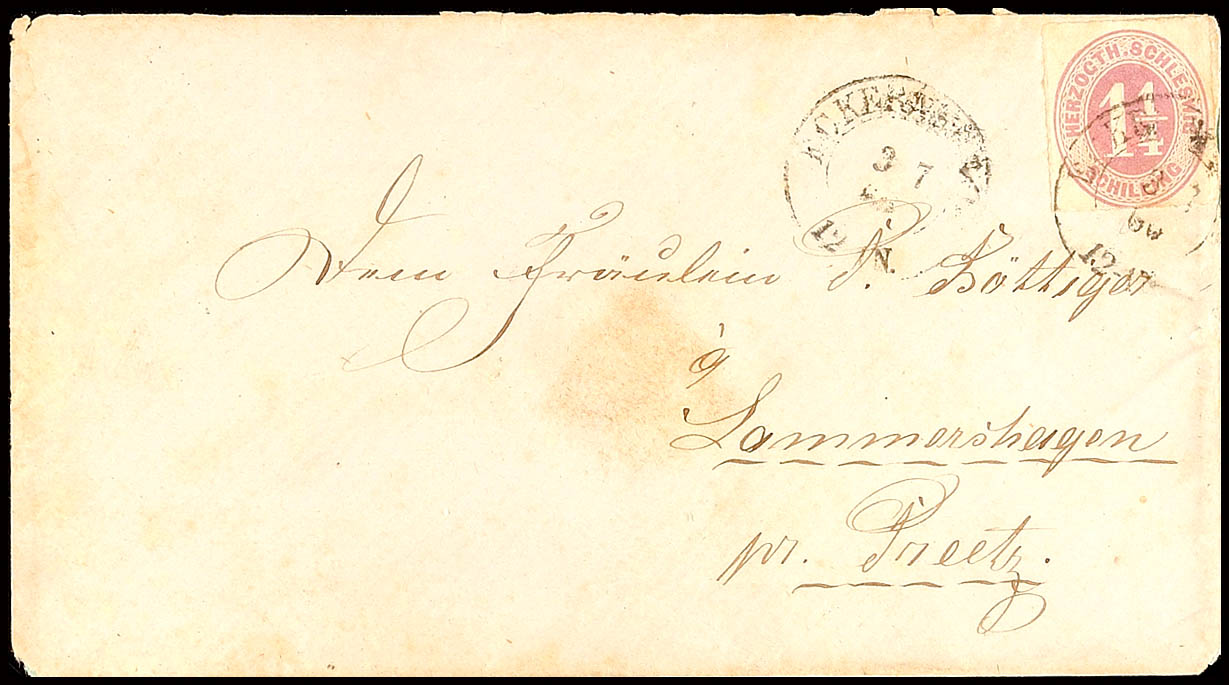 HERZOGTH. SCHLESWIG
1¼
SCHILLING
3 7
12
N.
Dem Fräulein P. Böttiger
à
Lammershagen
pr. Preetz.